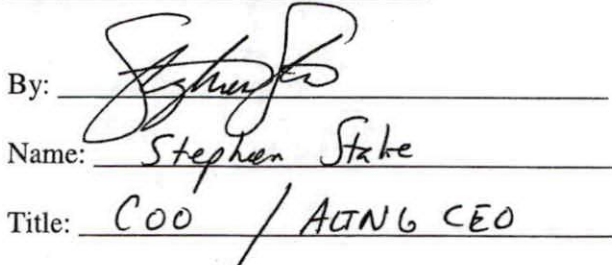 By:
Name: Stephen Stake
Title: COO / ACTING CEO